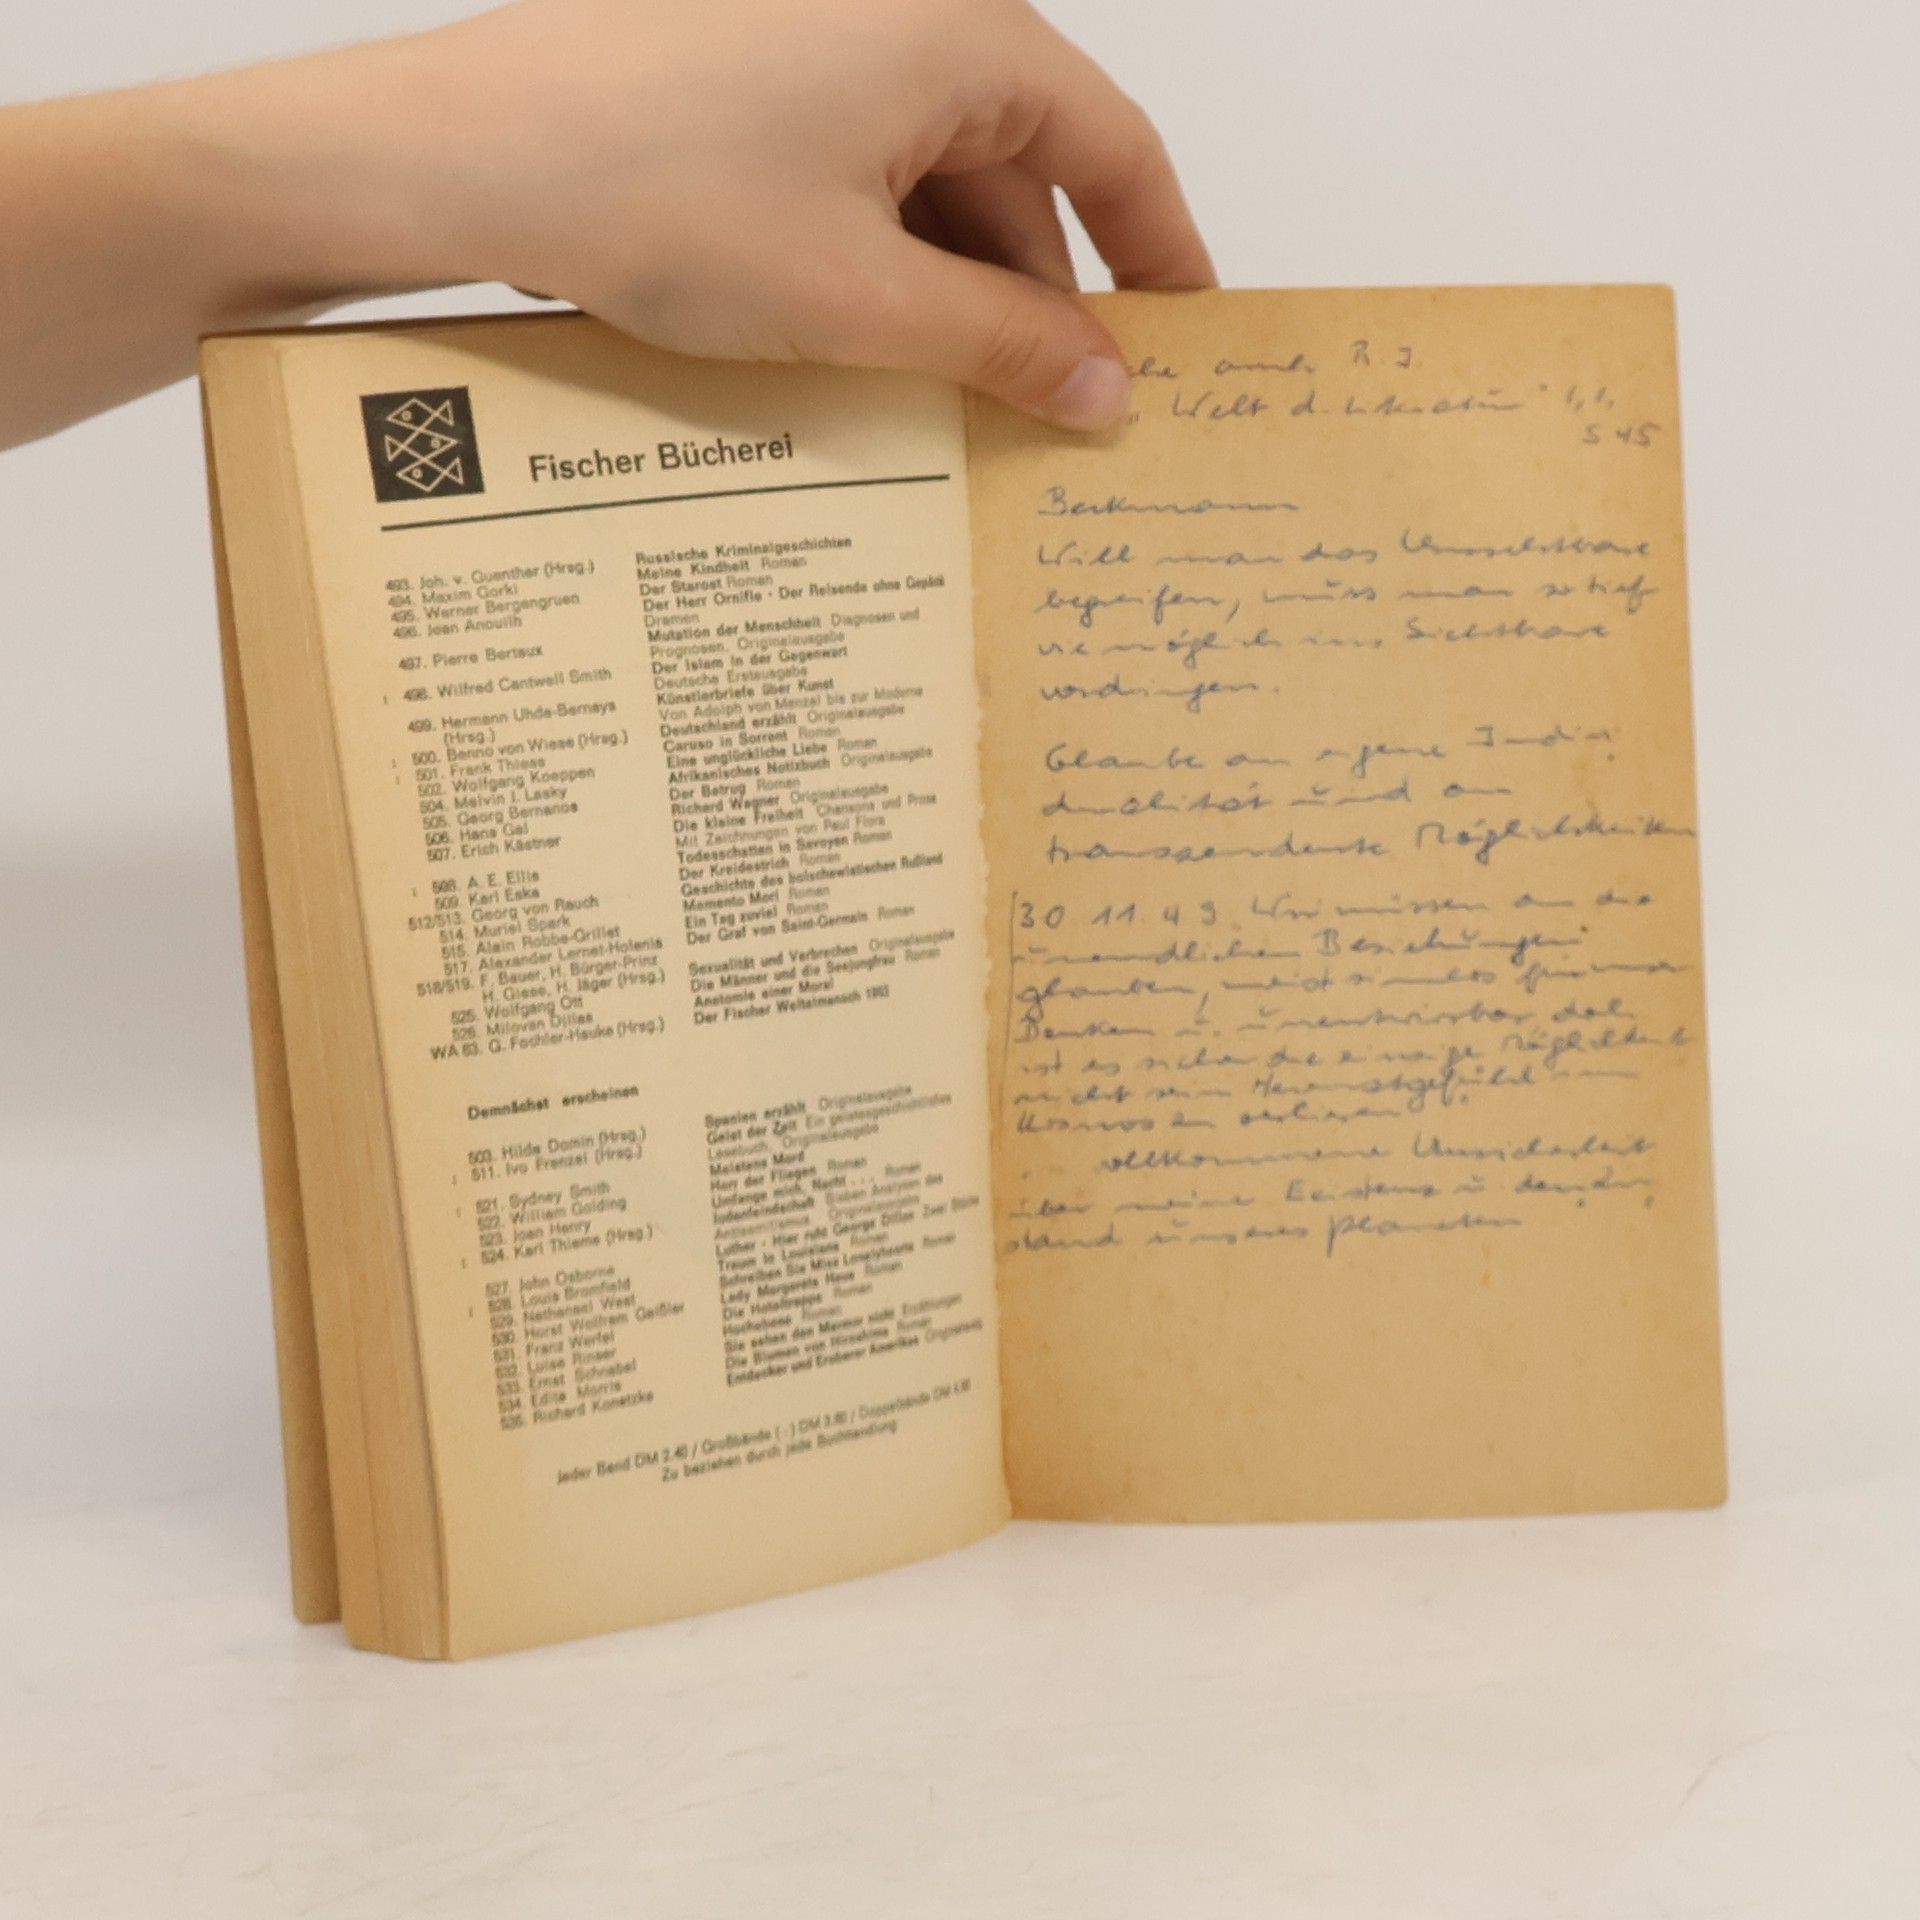 Fischer Bücherei
493. Joh. v. Guenther (Hrsg.) Russische Kriminalgeschichten
494. Maxim Gorki Meine Kindheit Roman
495. Werner Bergengruen Der Starost Roman
496. Jean Anouilh Der Herr Ornifle · Der Reisende ohne Gepäck
Dramen
497. Pierre Bertaux Mutation der Menschheit Diagnosen und
Prognosen, Originalausgabe
498. Wilfred Cantwell Smith Der Islam in der Gegenwart
Deutsche Erstausgabe
499. Hermann Uhde-Bernays Künstlerbriefe über Kunst
(Hrsg.) Von Adolph von Menzel bis zur Moderne
500. Benno von Wiese (Hrsg.) Deutschland erzählt Originalausgabe
501. Frank Thiess Caruso in Sorrent Roman
502. Wolfgang Koeppen Eine unglückliche Liebe Roman
504. Melvin J. Lasky Afrikanisches Notizbuch Originalausgabe
505. Georg Bernanos Der Betrug Roman
506. Hans Gal Richard Wagner Originalausgabe
507. Erich Kästner Die kleine Freiheit Chansons und Prosa
Mit Zeichnungen von Paul Flora
508. A. E. Ellis Todesschatten in Savoyen Roman
509. Karl Eska Der Kreidestrich Roman
512/513. Georg von Rauch Geschichte des bolschewistischen Rußland
514. Muriel Spark Memento Mori Roman
515. Alain Robbe-Grillet Ein Tag zuviel Roman
517. Alexander Lernet-Holenia Der Graf von Saint-Germain Roman
518/519. F. Bauer, H. Bürger-Prinz
H. Giese, H. Jäger (Hrsg.) Sexualität und Verbrechen Originalausgabe
525. Wolfgang Ott Die Männer und die Seejungfrau Roman
526. Milovan Djilas Anatomie einer Moral
WA 63. G. Fochler-Hauke (Hrsg.) Der Fischer Weltalmanach 1963
Demnächst erscheinen
503. Hilde Domin (Hrsg.) Spanien erzählt Originalausgabe
511. Ivo Frenzel (Hrsg.) Geist der Zeit Ein geistesgeschichtliches
Lesebuch, Originalausgabe
521. Sydney Smith Meistens Mord
522. William Golding Herr der Fliegen Roman
523. Joan Henry Umfange mich, Nacht . . . Roman
524. Karl Thieme (Hrsg.) Judenfeindschaft Sieben Analysen des
Antisemitismus Originalausgabe
527. John Osborne Luther · Hier ruht George Dillon Zwei Stücke
528. Louis Bromfield Traum in Louisiana Roman
529. Nathanael West Schreiben Sie Miss Lonelyhearts Roman
530. Horst Wolfram Geißler Lady Margarets Haus Roman
531. Franz Werfel Die Hoteltreppe
532. Luise Rinser Hochebene Roman
533. Ernst Schnabel Sie sehen den Marmor nicht Erzählungen
534. Edita Morris Die Blumen von Hiroshima Roman
535. Richard Konetzke Entdecker und Eroberer Amerikas
Jeder Band DM 2.40 / Großbände (:) DM 3.60 / Doppelbände DM 4.80
Zu beziehen durch jede Buchhandlung
auch R. J.
"Welt d. Literatur" 1,1,
S 45
Beckmann
Will man das Unsichtbare
begreifen, muss man so tief
wie möglich ins Sichtbare
vordringen.
Glaube an eigene Indivi
dualität und an
transzendente Möglichkeiten
30 11. 49 Wir müssen an die
unendlichen Beziehungen
glauben, sinnlos für unser
Denken u. unentwirrbar doch
ist es sicher die einzige Möglichkeit
nicht sein gefühl im
Kosmos zu verlieren
vollkommene Unsicherheit
über meine Existenz u den Zu,
stand unseres Planeten